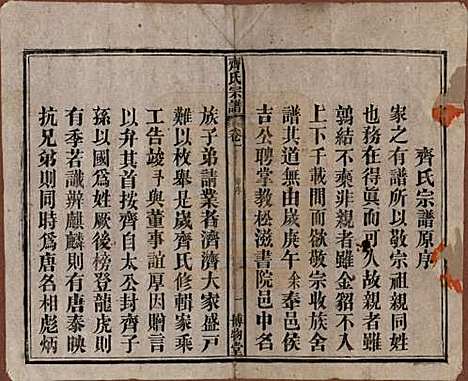 齊氏宗譜原序
家之有譜所以敬宗祖親同姓
也務在得眞而可人故親者雖
鶉結不棄非親者雖金貂不入
上下千載間而欲敬宗收族舍
譜其道無由歲庚午余奉邑侯
吉公聘掌教松滋書院邑中名
齊氏宗譜
卷一
一
博物堂
族子弟請業者濟濟大家盛戸
難以枚舉是歲齊氏修輯家乘
工告竣丐與董事誼厚因贈言
以弁其首按齊自太公封齊子
孫以國爲姓厥後榜登龍虎則
有季若識辨麒麟則有唐泰映
抗兄弟則同時爲唐名相彪炳